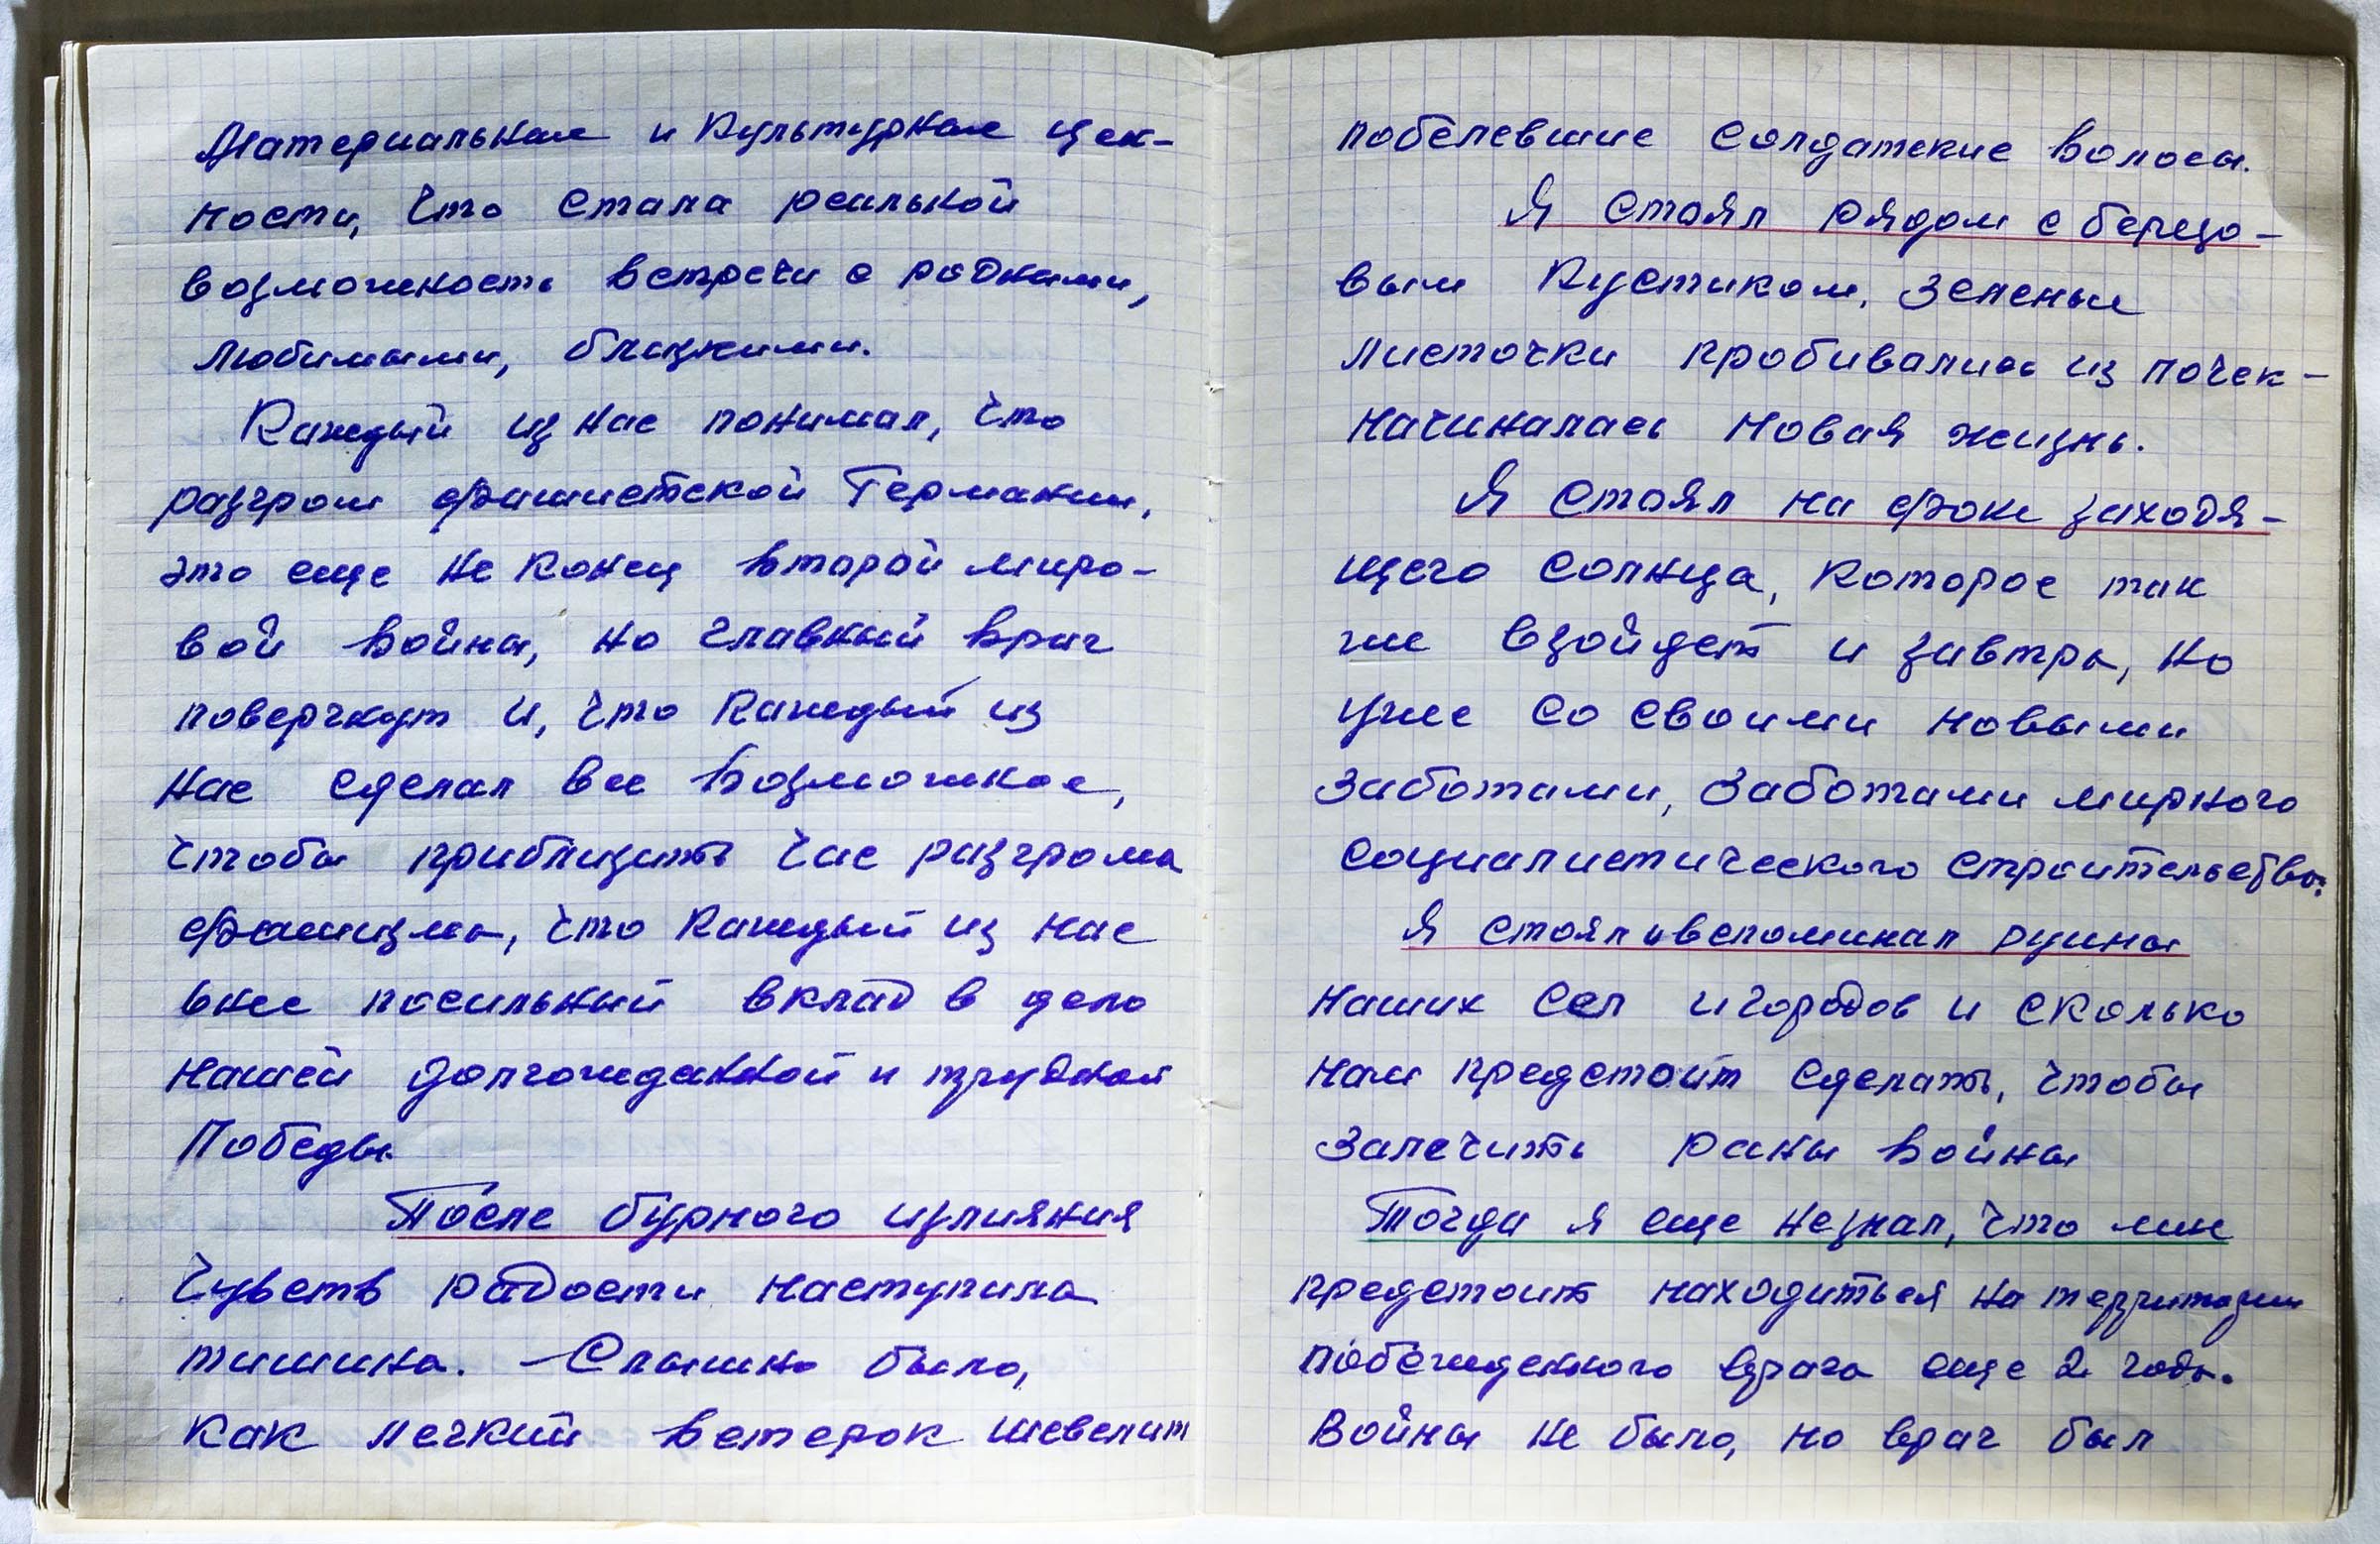 Материальные и культурные цен-
ности, что стала реальной
возможность встречи с родными,
любимыми, близкими.
Каждый из нас понимал, что
разгром фашистской Германии,
это еще не конец второй миро-
вой войны, но главный враг
повергнут и, что каждый из
нас сделал все возможное,
чтобы приблизить час разгрома
фашизма, что каждый из нас
внес посильный вклад в дело
нашей долгожданной и трудной
Победы.
После бурного излияния
чувств радости наступила
тишина. Слышно было,
как легкий ветерок шевелит
побелевшие солдатские волосы.
Я стоял рядом с березо-
вым кустиком, зеленые
листочки пробивались из почек -
начиналась новая жизнь.
Я стоял на фоне заходя-
щего солнца, которое так
же взойдет и завтра, но
уже со своими новыми
заботами, заботами мирного
социалистического строительства.
Я стоял и вспоминал руины
наших сел и городов и сколько
нам предстоит сделать, чтобы
залечить раны войны
Тогда я еще не знал, что мне
предстоит находиться на территории
побежденного врага еще 2 года.
Войны не было, но враг был